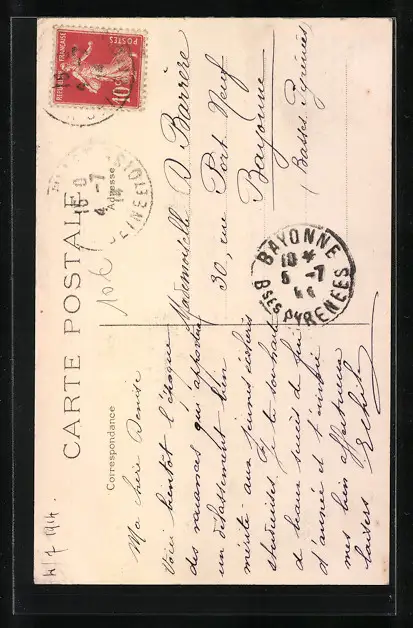 RÉPUBLIQUE FRANÇAISE
POSTES
10c
CARTE POSTALE
Correspondance
Adresse
10k
4/7 1914.
Ma chère Denise
Voici bientôt l'époque
des vacances qui apporte
un délassement bien
mérité aux jeunes écolières
studieuses. Je te souhaite
de beaux succès de fin
d'année et t'envoie
mes bien affectueux
baisers
Mademoiselle D Barrère
30, rue Port Neuf
Bayonne
(Basses Pyrénées
BAYONNE
10 *
5 -7
14
Bses PYRENEES